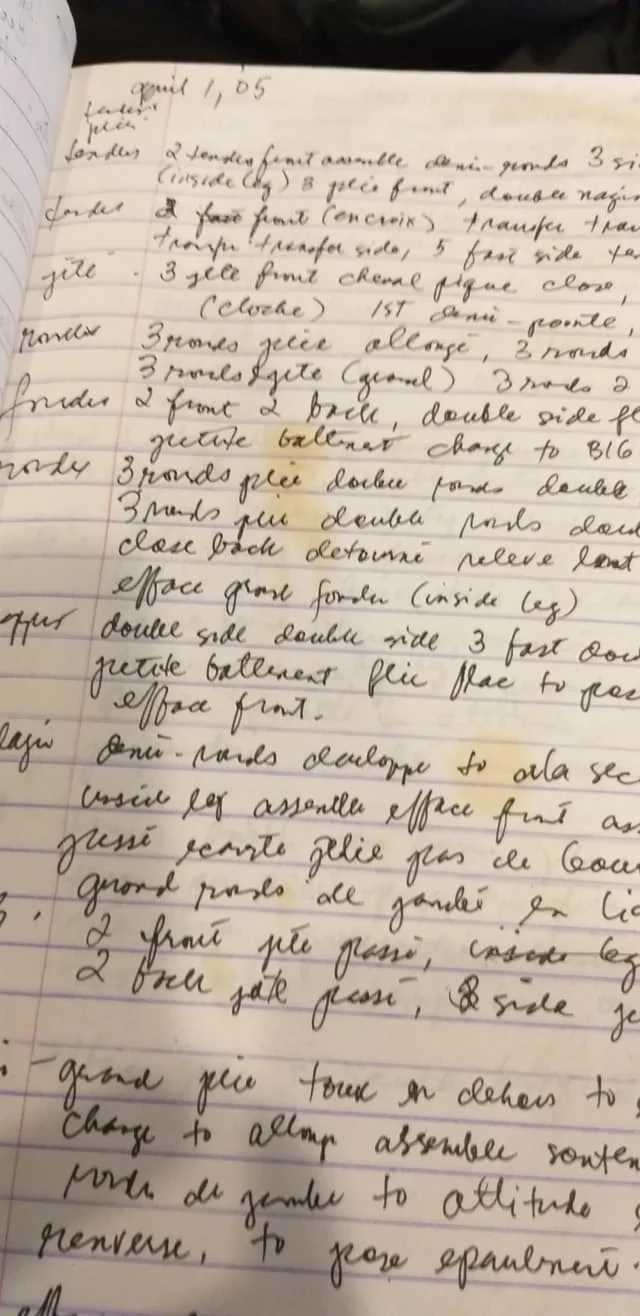 april 1, 05
plié
tendus 2 tendus front assemble demi-ronds 3 si
(inside leg) 3 plié front, double
front (encroix) transfer tra
transfer side, 5 fast side te
jété 3 jete front cheval pique close,
(cloche) 1st demi-pointe,
rondes 3 ronds plié allongé, 3 ronds
3 ronds jete (grand) 3 ronds 2
fondes 2 front 2 back, double side fl
petite battement change to BIG
rondes 3 ronds plié double ronds double
3 ronds plié double ronds dou
close back detourné releve
efface grand fondu (inside leg)
double side double side 3 fast dou
petite battement flic flac to pas
efface front.
demi-ronds developpe to ala sec
inside leg assemble efface front ass
passé ecarte plié pas de bour
grand ronds de jambé en
2 front jété passé, inside leg
2 back jété passé, 2 side je
- grand plié tour en dehors to
change to allonge assemble souten
ronde de jambe to attitude
renverse, to pose epaulment.